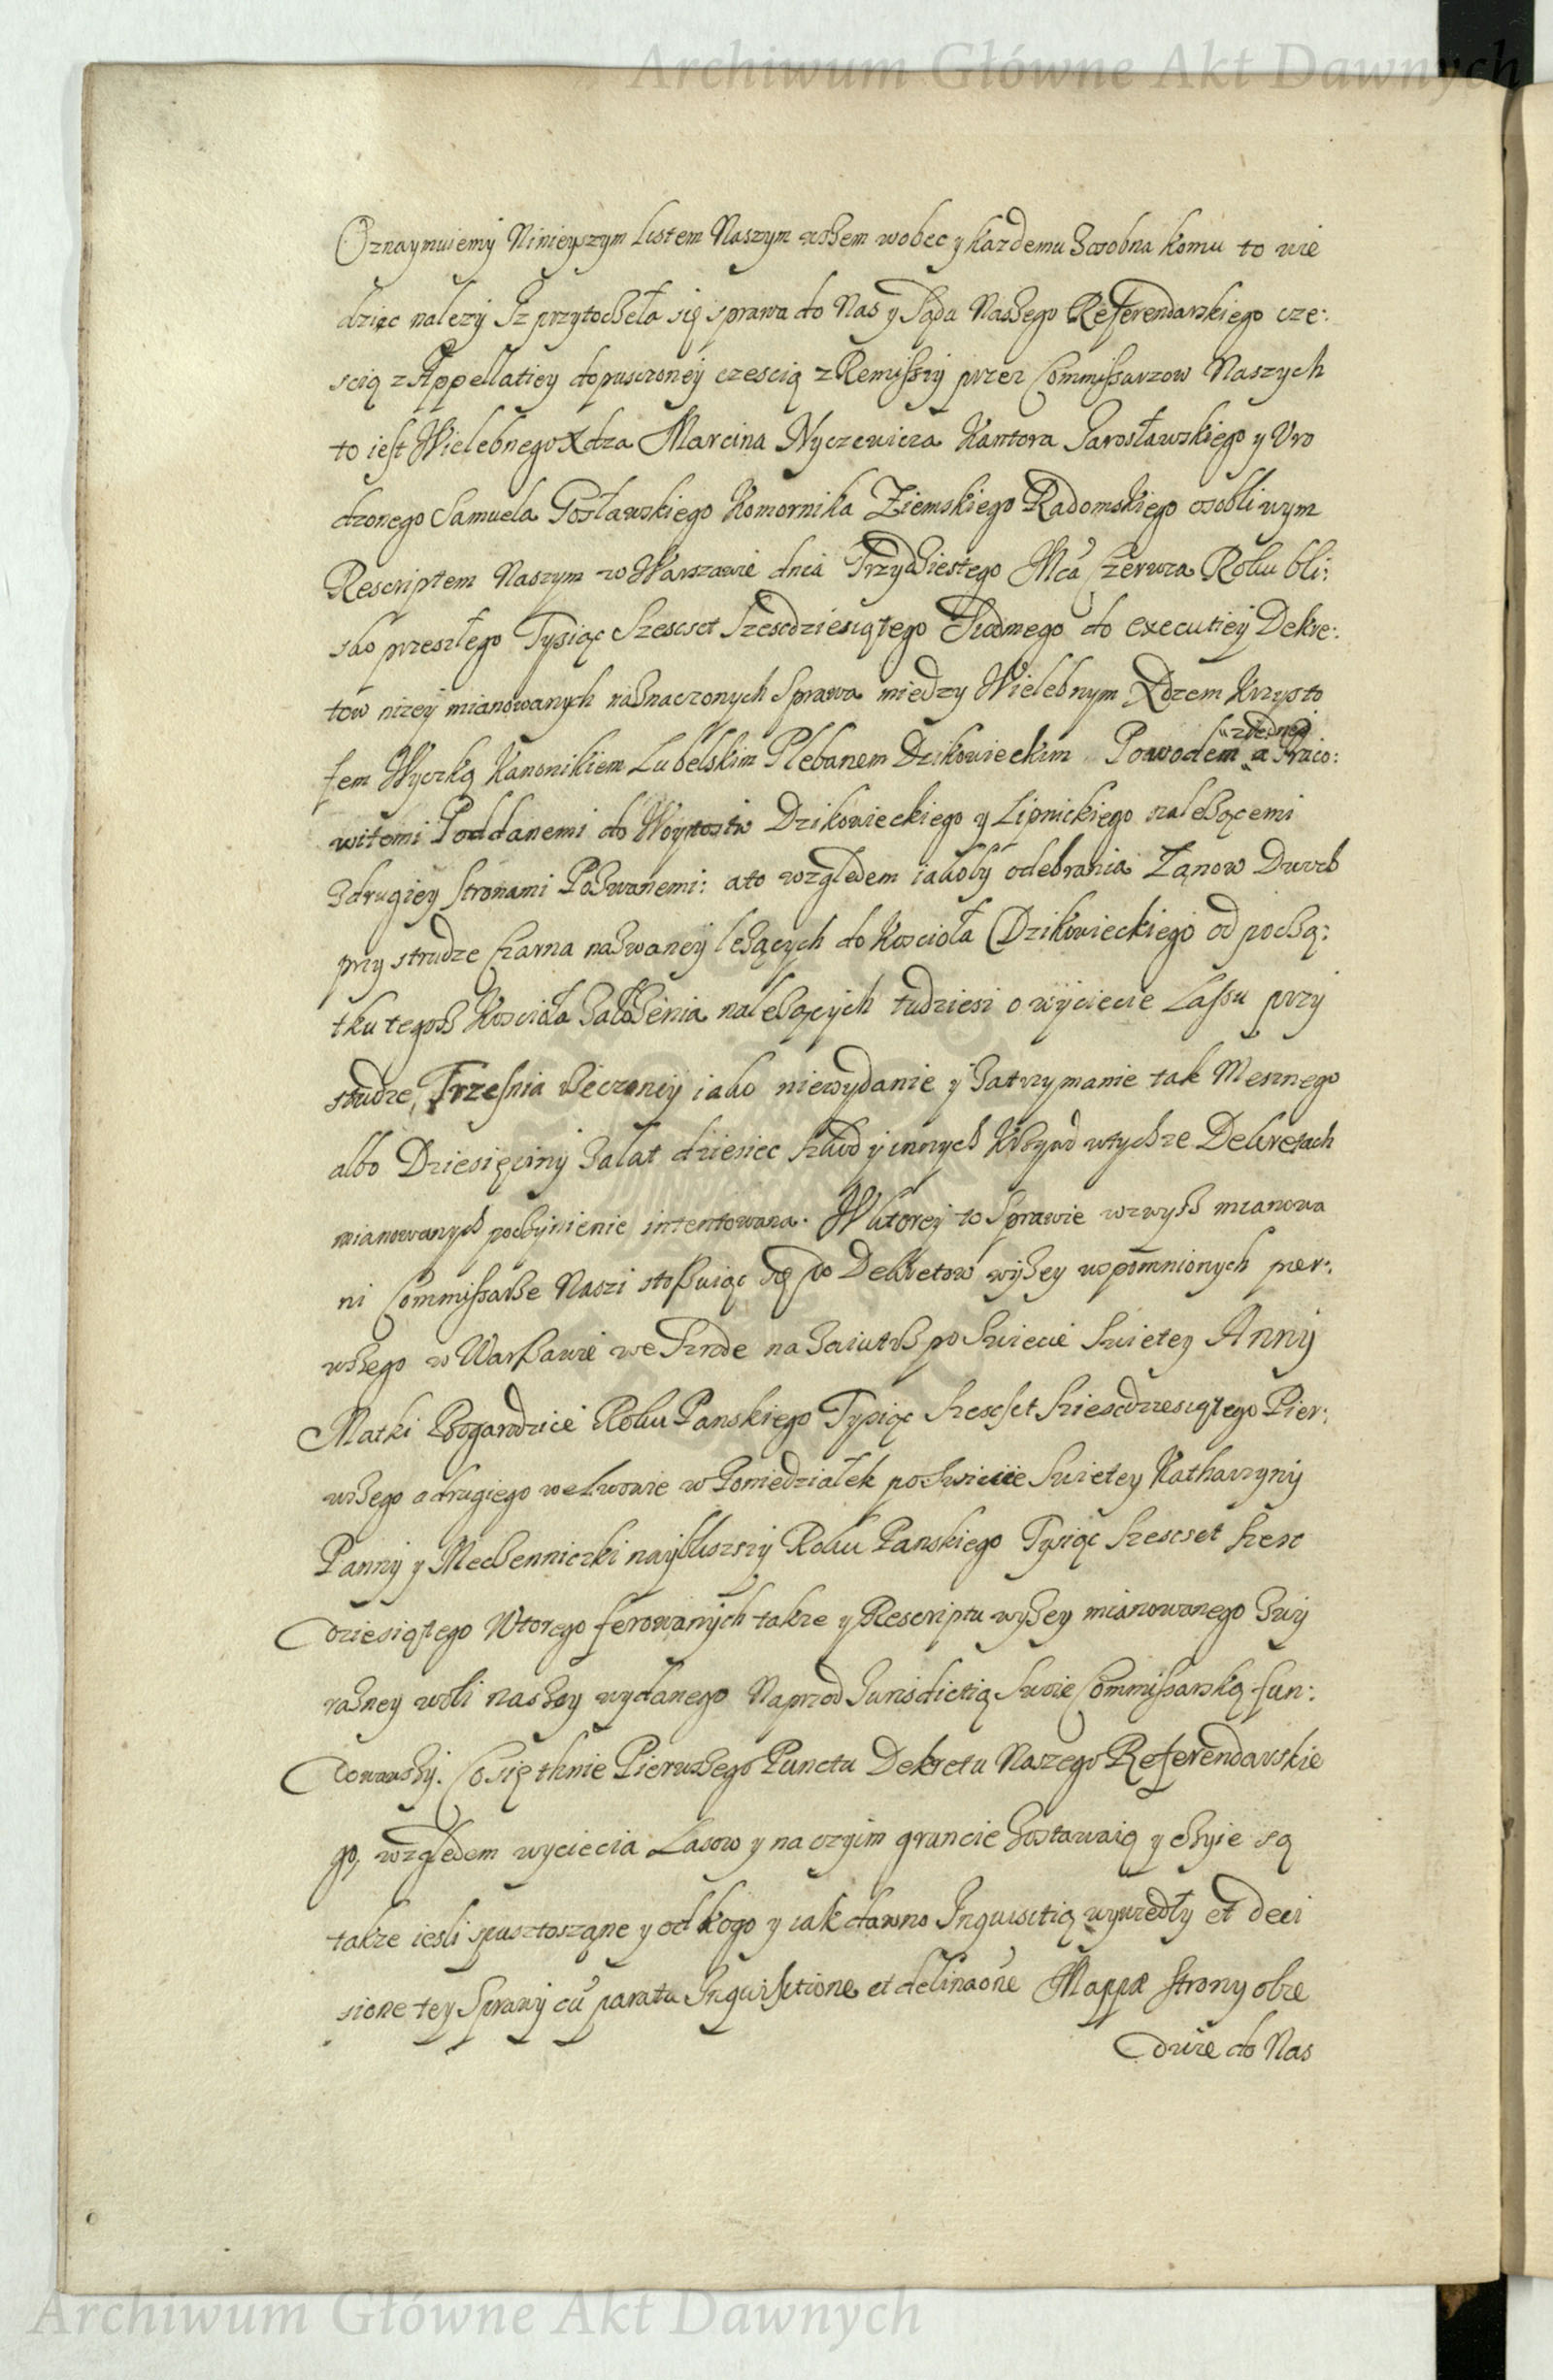 Archiwum Główne Akt Dawnych
Oznaymuiemy Ninieyszym Listem Naszym wszem wobec y kazdemu zosobna komu to wie
dziec nalezy Iz przytoczeła się sprawa do Nas y Sądu Naszego Referendarskiego cze:
scią z Appellatiey dopusczoney czescią z Remissiy przez Commissarzow Naszych
to iest Wielebnego Xdza Marcina Nyczewicza Kantora Jarosławskiego y Uro
dzonego Samuela Posławskiego Komornika Ziemskiego Radomskiego osobliwym
Rescriptem Naszym w Warszawie dnia Trzydziestego Mca Czerwca Roku bli:
sko przeszłego Tysiąc Szescset Szescdziesiątego Siodmego do executiey Dekre:
tow nizey mianowanych naznaczonych Sprawa miedzy Wielebnym Xdzem Krzyszto
fem Wyczką Kanonikiem Lubelskim Plebanem Dzikowieckim Powodem z iedney a Praco:
witemi Poddanemi do Woytostw Dzikowieckiego y Lipnickiego nalezącemi
z drugiey Stronami Pozwanemi: a to względem iakoby odebrania Łanow Dwuch
przy strudze Czarna nazwaney lezących do Koscioła Dzikowieckiego od począ:
tku tegosz Koscioła załozenia nalezących tudziesz o wycięcie Lassu przy
strudze, Trzesnia rzeczoney iako niewydanie y zatrzymanie tak Mesznego
albo Dziesięciny za lat dziesiec szkod y innych Krzywd w tychze Dekretach
mianowanych poczynienie intentowana. W ktorey to Sprawie wzwysz mianowa
ni Commissarze Naszi stosuiąc się do Dekretow wyzey wspomnionych pier:
wszego w Warszawie we Srode nazaiutrz po Swiecie Swietey Anny
Matki Bogarodzice Roku Panskiego Tysiąc Szescset Szescdziesiątego Pier:
wszego a drugiego we Lwowie w Poniedziałek po Swiecie Swietey Katharzyny
Panny y Meczenniczki nayblizszy Roku Panskiego Tysiąc Szescset Szesc
dziesiątego Wtorego ferowanych takze y Rescriptu wyzey mianowanego z wy
razney woli naszey wydanego Naprzod Jurisdictią Swoie Commissarską fun:
dowawszy. Co się tknie Pierwszego Punctu Dekretu Naszego Referendarskie
go, względem wyciecia Lasow y na czyim gruncie zostawaią y czyie są
takze iesli spustoszone y od kogo y iak dawno Inquisitią wywiedły et deci
sione tey Sprawy cū parata Inquisitione et delinaōne Mappæ Strony obie
dwie do Nas
Archiwum Główne Akt Dawnych